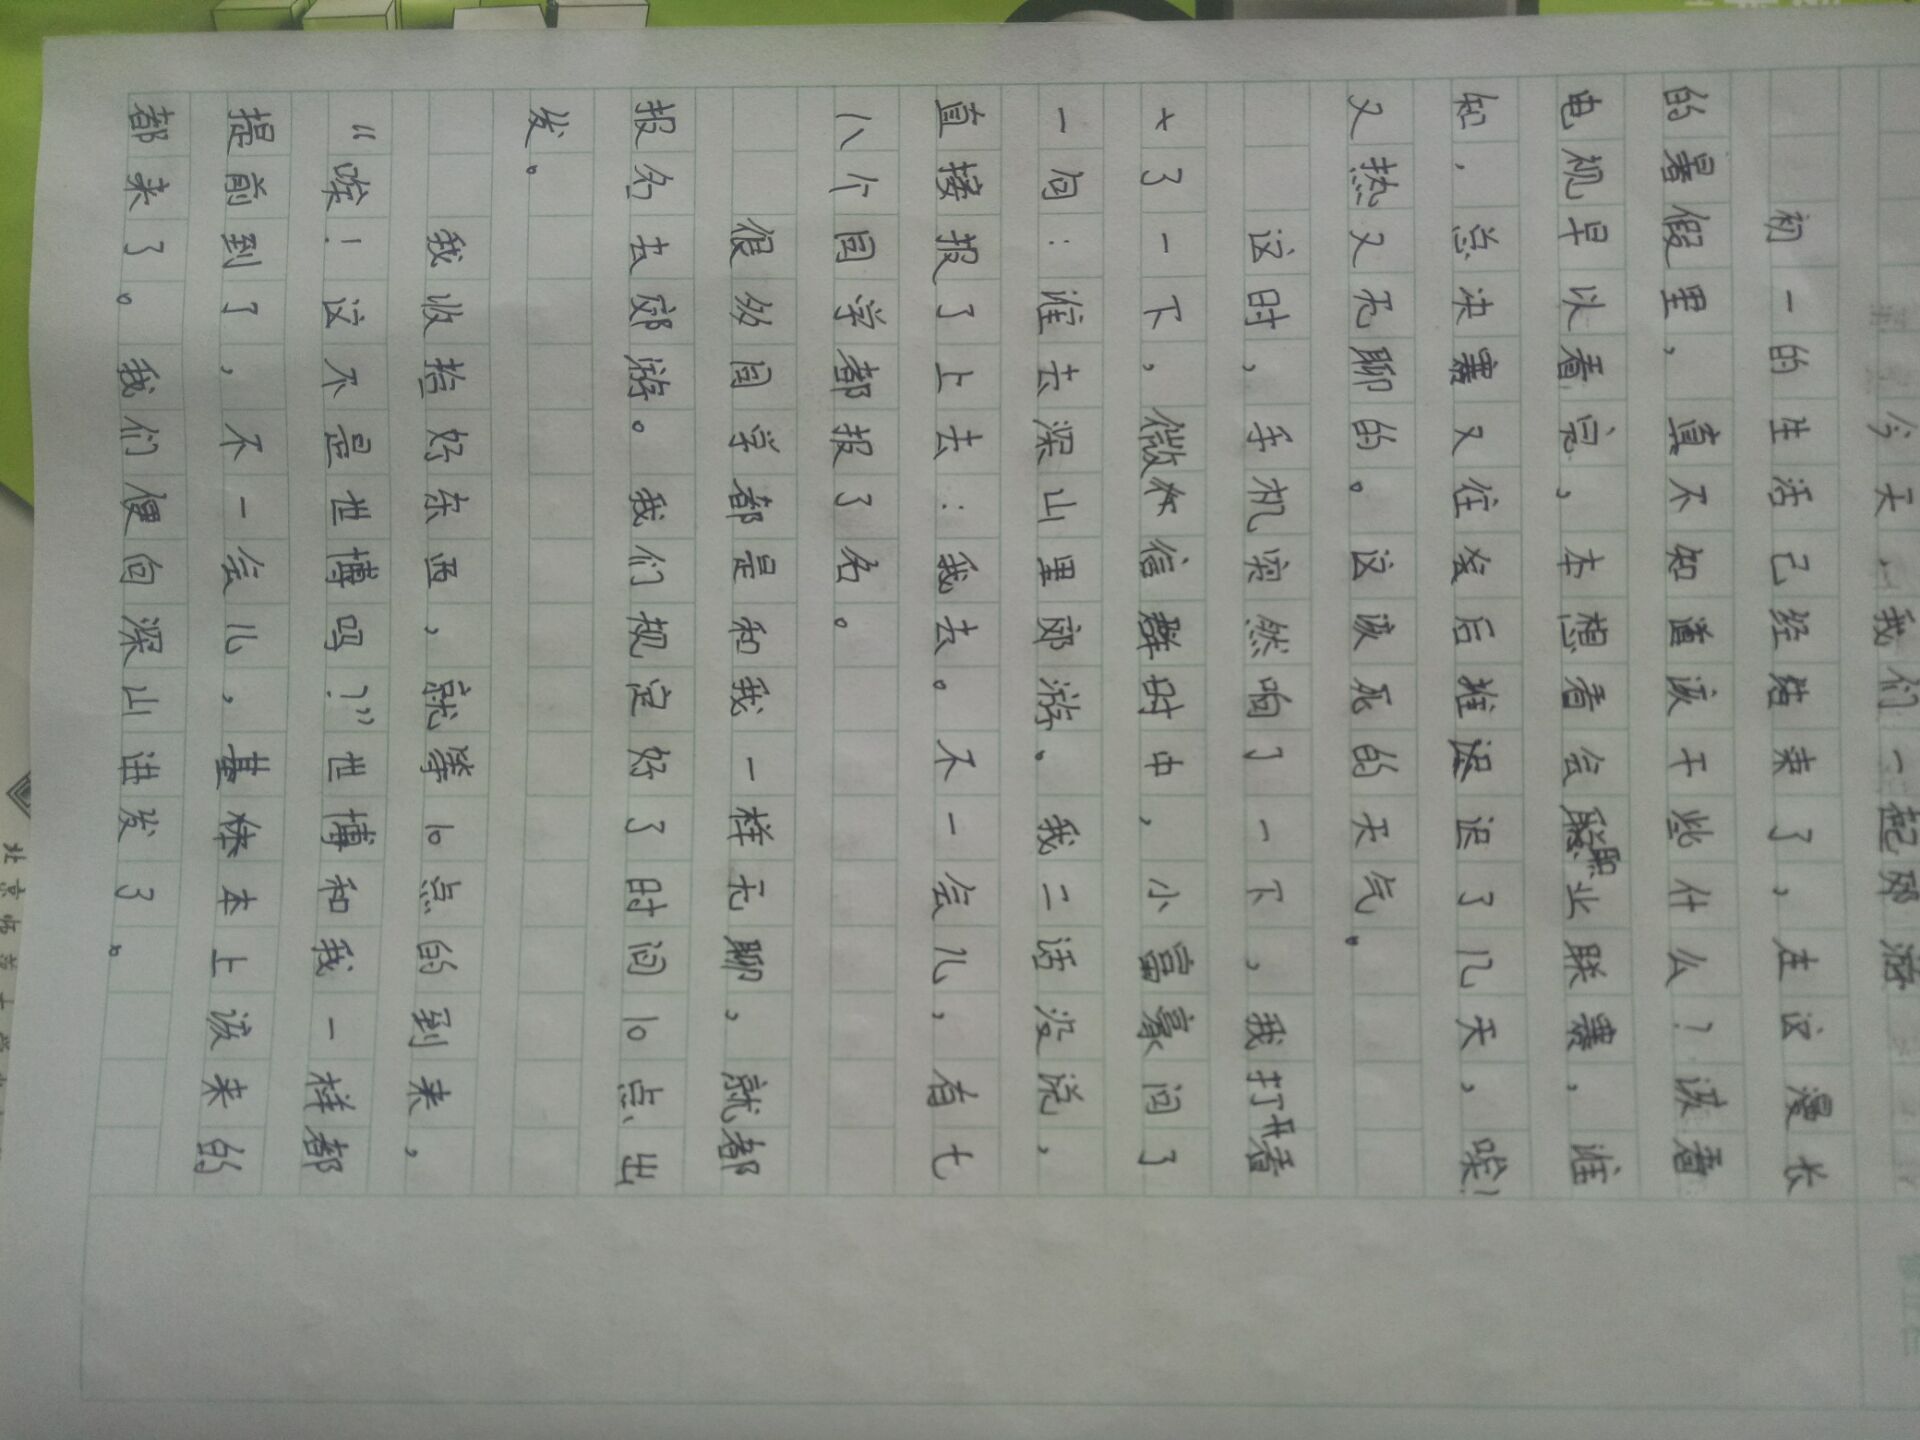 今天，我们一起郊游
初一的生活已经结束了，在这漫长
的暑假里，真不知道该干些什么？该看
电视早以看完，本想看会职业联赛，谁
知，总决赛又往后推迟了几天，唉！
又热又无聊的。这该死的天气。
这时，手机突然响了一下，我打开看
了一下，微信群中，小富豪问了
一句：谁去深山里郊游。我二话没说，
直接报了上去：我去。不一会儿，有七
八个同学都报了名。
很多同学都是和我一样无聊，就都
报名去郊游。我们规定好了时间10点出
发。
我收拾好东西，就等10点的到来，
“唉！这不是世博吗？”世博和我一样都
提前到了，不一会儿，基本上该来的
都来了。我们便向深山进发了。
北京